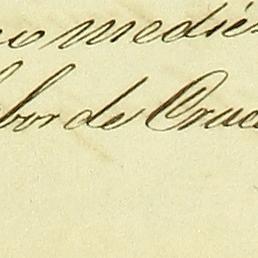 medié
bor de Cruc